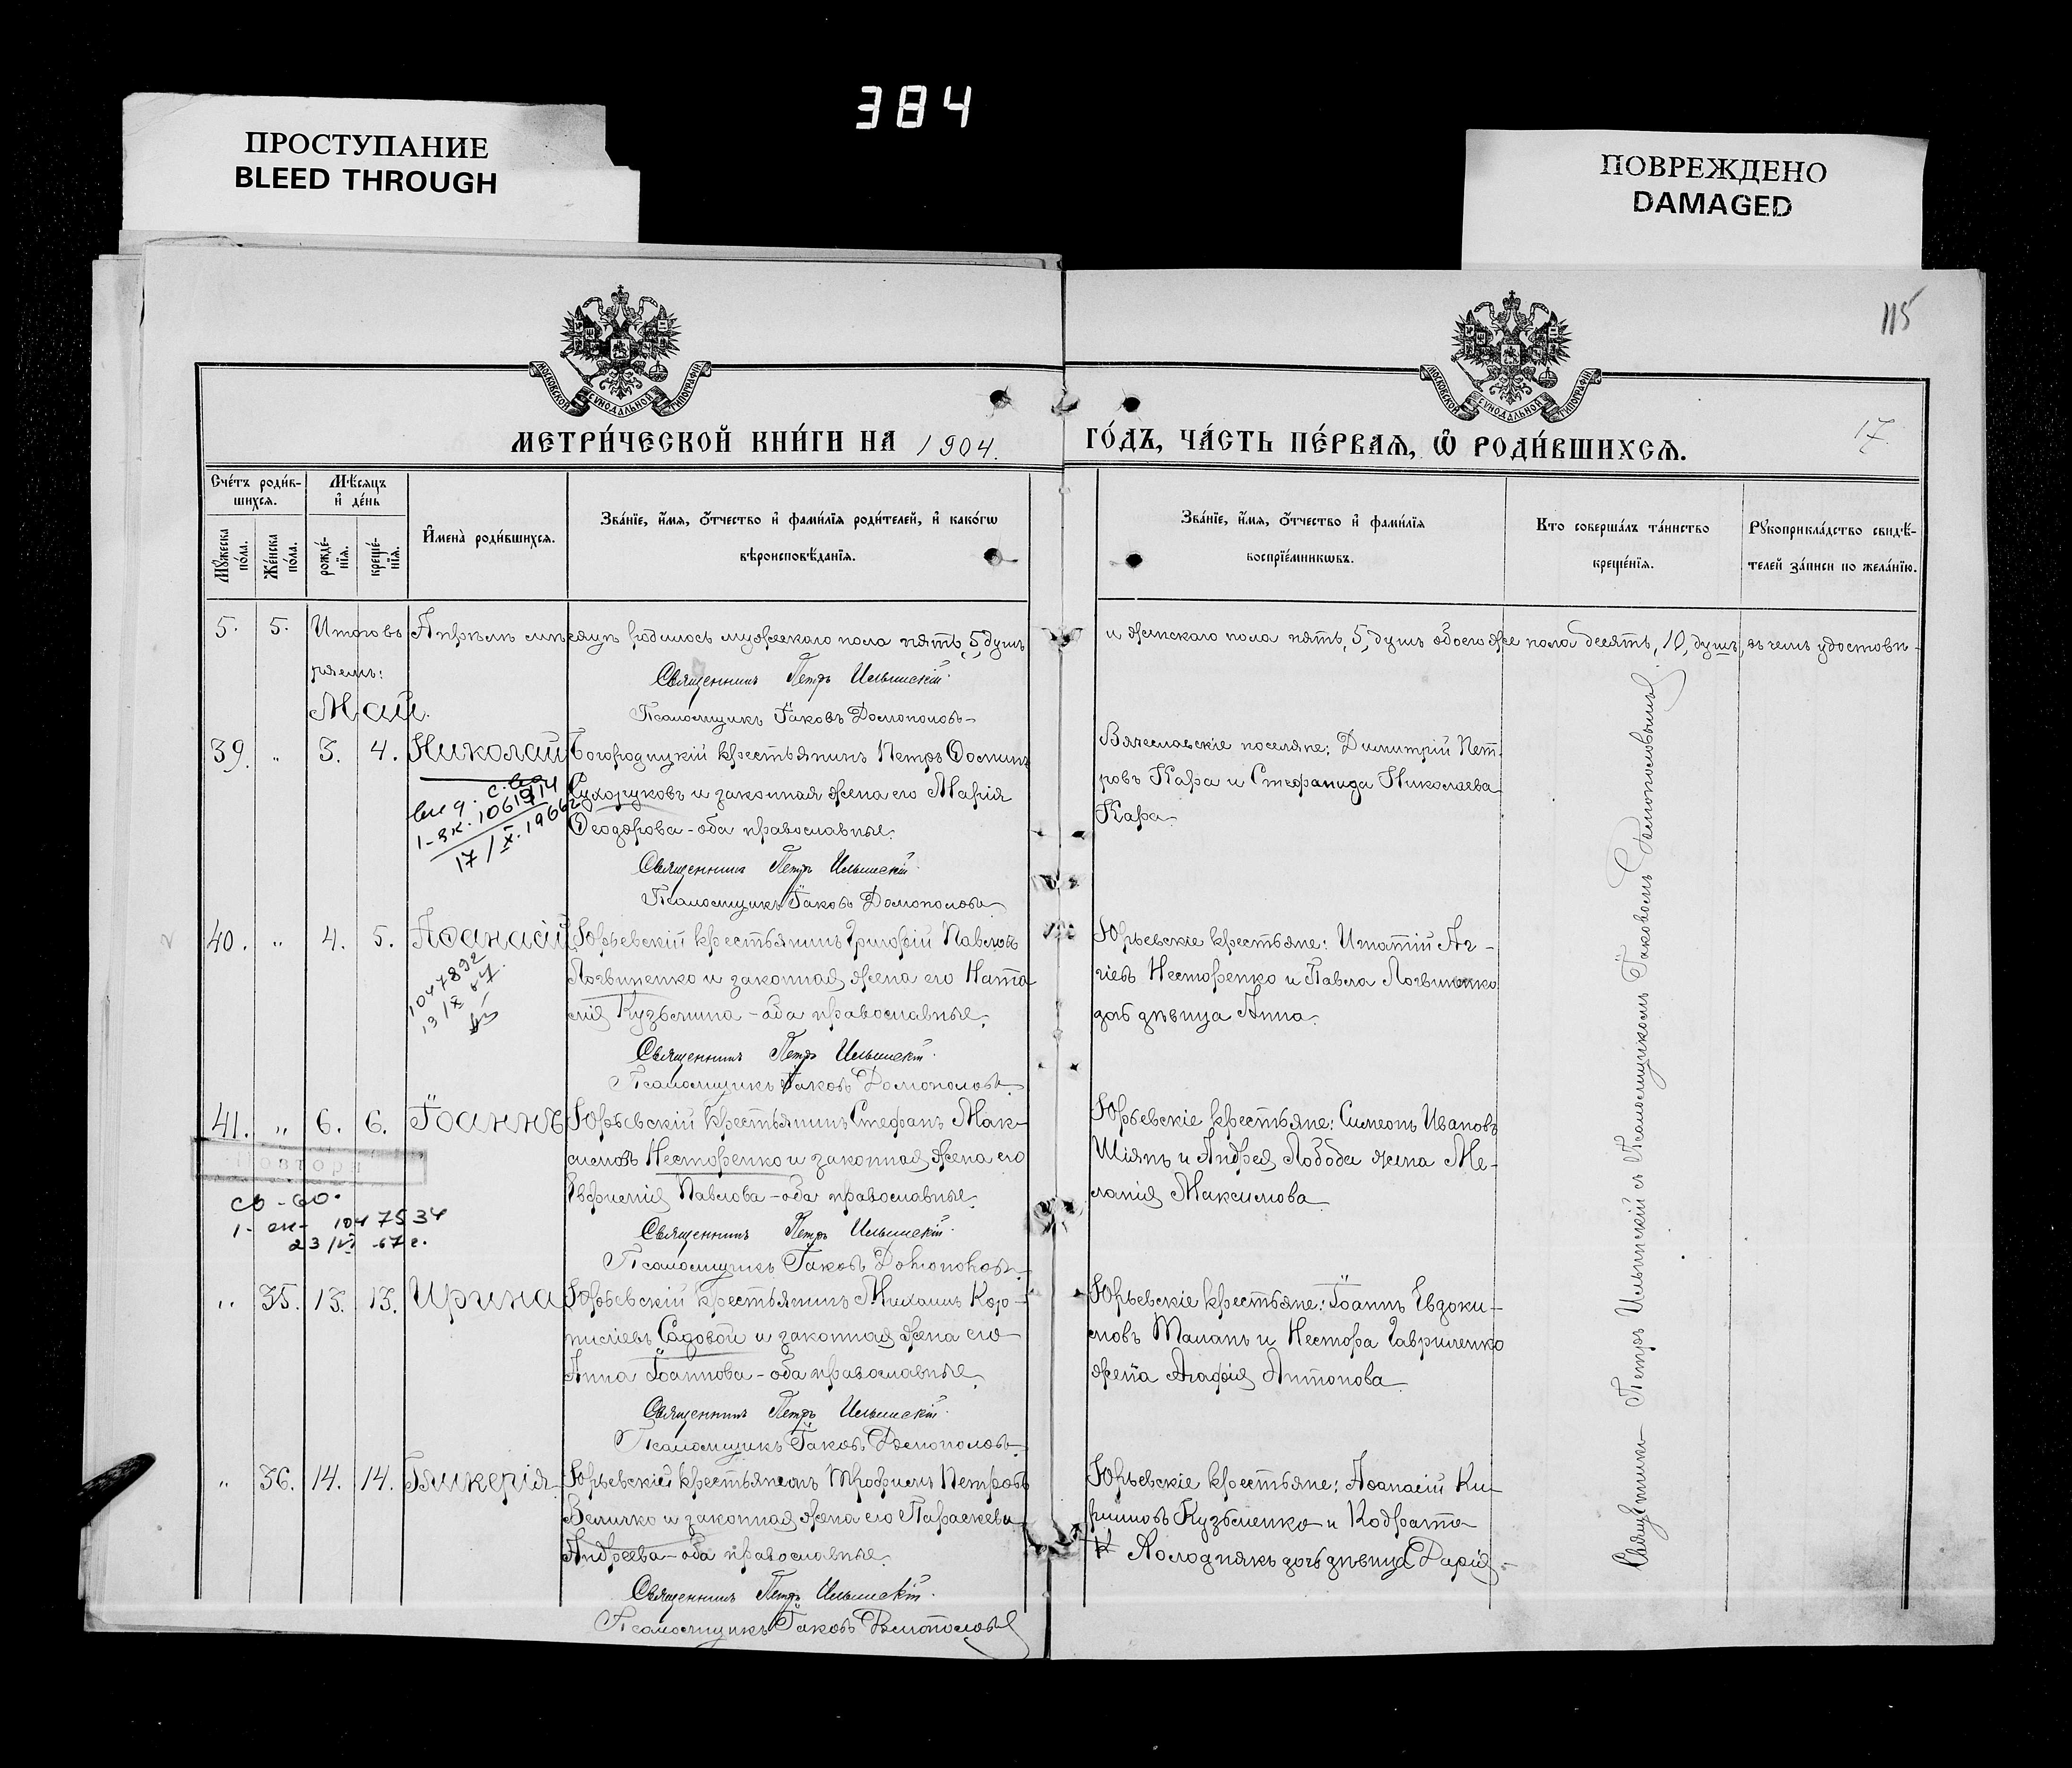 384
ПРОСТУПАНИЕ
BLEED THROUGH
ПОВРЕЖДЕНО
DAMAGED
115
МОСКОВСКОЙ СУНОДАЛЬНОЙ ТИПОГРАФІИ
МОСКОВСКОЙ СУНОДАЛЬНОЙ ТИПОГРАФІИ
МЕТРИ́ЧЕСКОЙ КНИ́ГИ НА 1904.
ГО́ДЪ, ЧА́СТЬ ПЕ́РВАѦ, Ѡ҆ РОДИ́ВШИХСѦ.
17.
Сче́тъ роди́в-
шихсѧ.
Мꙋ́жеска по́ла.
Же́нска по́ла.
Мѣ́сѧцъ
и҆ де́нь
рожде́-
нїѧ.
креще́-
нїѧ.
И҆мена̀ роди́вшихсѧ.
Зва́нїе, и҆́мѧ, ѻ҆́тчество и҆ фами́лїѧ роди́телей, и҆ како́гѡ
вѣроисповѣ́данїѧ.
Зва́нїе, и҆́мѧ, ѻ҆́тчество и҆ фами́лїѧ
воспрїе́мникѡвъ.
Кто соверша́лъ та́инство
креще́нїѧ.
Рꙋкоприкла́дство свидѣ́-
телей за́писи по жела́нїю.
5. 5. Итого въ Апрѣлѣ мѣсяцѣ родилось мужескаго пола пять, 5, душъ
и женскаго пола пять, 5, душъ обоего же пола десять, 10, душъ, въ чемъ удостовѣ-
ряемъ:
Священникъ Петръ Ильинскій
Псаломщикъ Іаковъ Домонополовъ
Май.
39. " 3. 4. Николай
Богородицкій крестьянинъ Петръ Ѳоминъ
Сухоруковъ и законная жена его Марія
Ѳеодорова - оба православные.
Священникъ Петръ Ильинскій
Псаломщикъ Іаковъ Домонополовъ
1061914
17/X. 1966
Вячеславскіе поселяне: Димитрій Пет-
ровъ Кара и Стефанида Николаева
Кара.
40. " 4. 5. Аѳанасій
1047892
Юрьевскій крестьянинъ Григорій Павловъ
Логвиненко и законная жена его Ната-
лія Кузьмина - оба православные.
Священникъ Петръ Ильинскій
Псаломщикъ Іаковъ Домонополовъ
Юрьевскіе крестьяне: Игнатій Аг-
гіевъ Несторенко и Павла Логвиненко
дочь дѣвица Анна.
41. " 6. 6. Іоаннъ
Повторн
1047534
23/VI -67 г.
Юрьевскій крестьянинъ Стефанъ Мак-
симовъ Несторенко и законная жена его
Евфимія Павлова - оба православные.
Священникъ Петръ Ильинскій
Псаломщикъ Іаковъ Домонополовъ
Юрьевскіе крестьяне: Симеонъ Ивановъ
Шіянъ и Андрея Лобода жена Ме-
ланія Максимова.
" 35. 13. 13. Ирина
Юрьевскій крестьянинъ Михаилъ Кор-
ниліевъ Садовой и законная жена его
Анна Іоаннова - оба православные.
Священникъ Петръ Ильинскій
Псаломщикъ Іаковъ Домонополовъ
Юрьевскіе крестьяне: Іоаннъ Евдоки-
мовъ Таланъ и Нестора Гавриленко
жена Агафія Антонова.
" 36. 14. 14. Гликерія
Юрьевскій крестьянинъ Трофимъ Петровъ
Величко и законная жена его Параскева
Андреева - оба православные.
Священникъ Петръ Ильинскій
Псаломщикъ Іаковъ Домонополовъ
Юрьевскіе крестьяне: Аѳанасій Ки-
рилловъ Кузьменко и Кодрата
Холоднякъ дочь дѣвица Дарія.
Священникъ Петръ Ильинскій съ Псаломщикомъ Іаковомъ Домонополовымъ